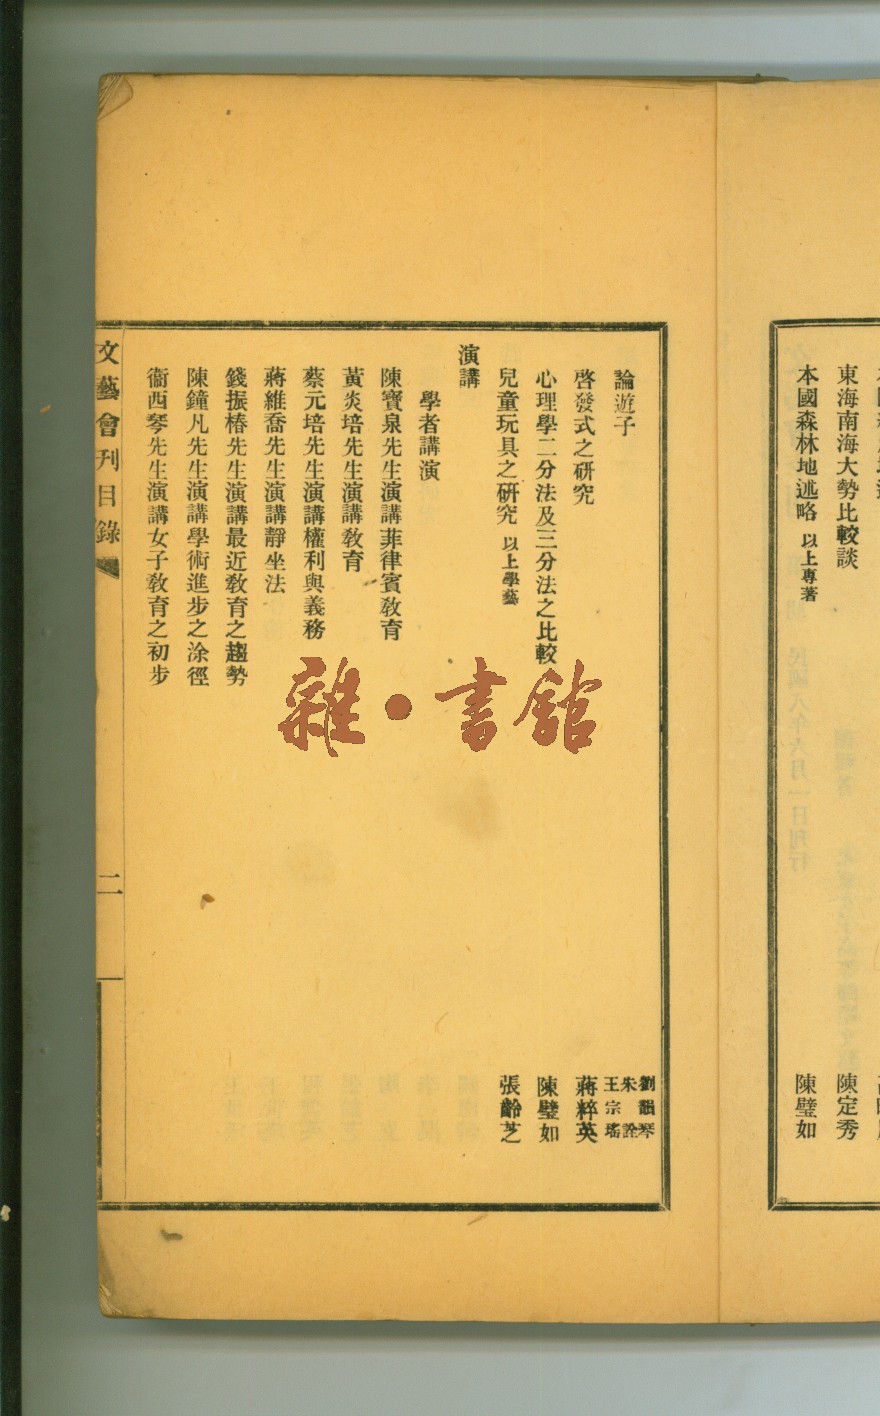 東海南海大勢比較談 陳定秀
本國森林地述略 以上專著 陳璧如
論遊子 劉韻琴 朱詮 王宗瑤
啓發式之研究 蔣粹英
心理學二分法及三分法之比較 陳璧如
兒童玩具之研究 以上學藝 張齡芝
演講
學者講演
陳寶泉先生演講菲律賓敎育
黃炎培先生演講敎育
蔡元培先生演講權利與義務
蔣維喬先生演講靜坐法
錢振椿先生演講最近敎育之趨勢
陳鐘凡先生演講學術進步之涂徑
衞西琴先生演講女子敎育之初步
文藝會刊目錄 二
雜·書館